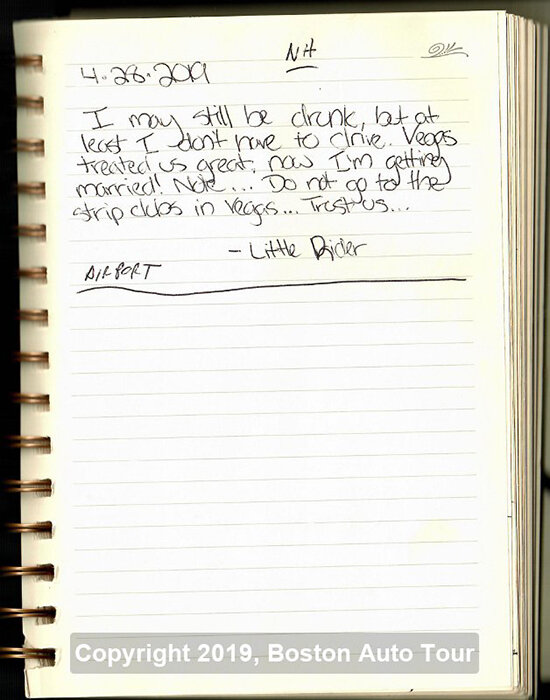 NH
4.28.2019
I may still be drunk, but at
least I don't have to drive. Vegas
treated us great, now I'm getting
married! Note... Do not go to the
strip clubs in Vegas... Trust us...
- Little Rider
AIRPORT
Copyright 2019, Boston Auto Tour